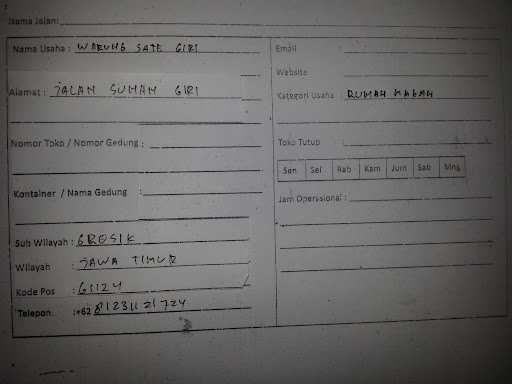 Nama Jalan:
Nama Usaha : WARUNG SATE GIRI
Alamat : JALAN SUNAN GIRI
Nomor Toko / Nomor Gedung :
Kontainer / Nama Gedung :
Sub Wilayah : GRESIK
Wilayah : JAWA TIMUR
Kode Pos : 61124
Telepon. :+62 81231121724
Email :
Website
Kategori Usaha : RUMAH MAKAN
Toko Tutup :
Sen Sel Rab Kam Jum Sab Mng
Jam Operasional :